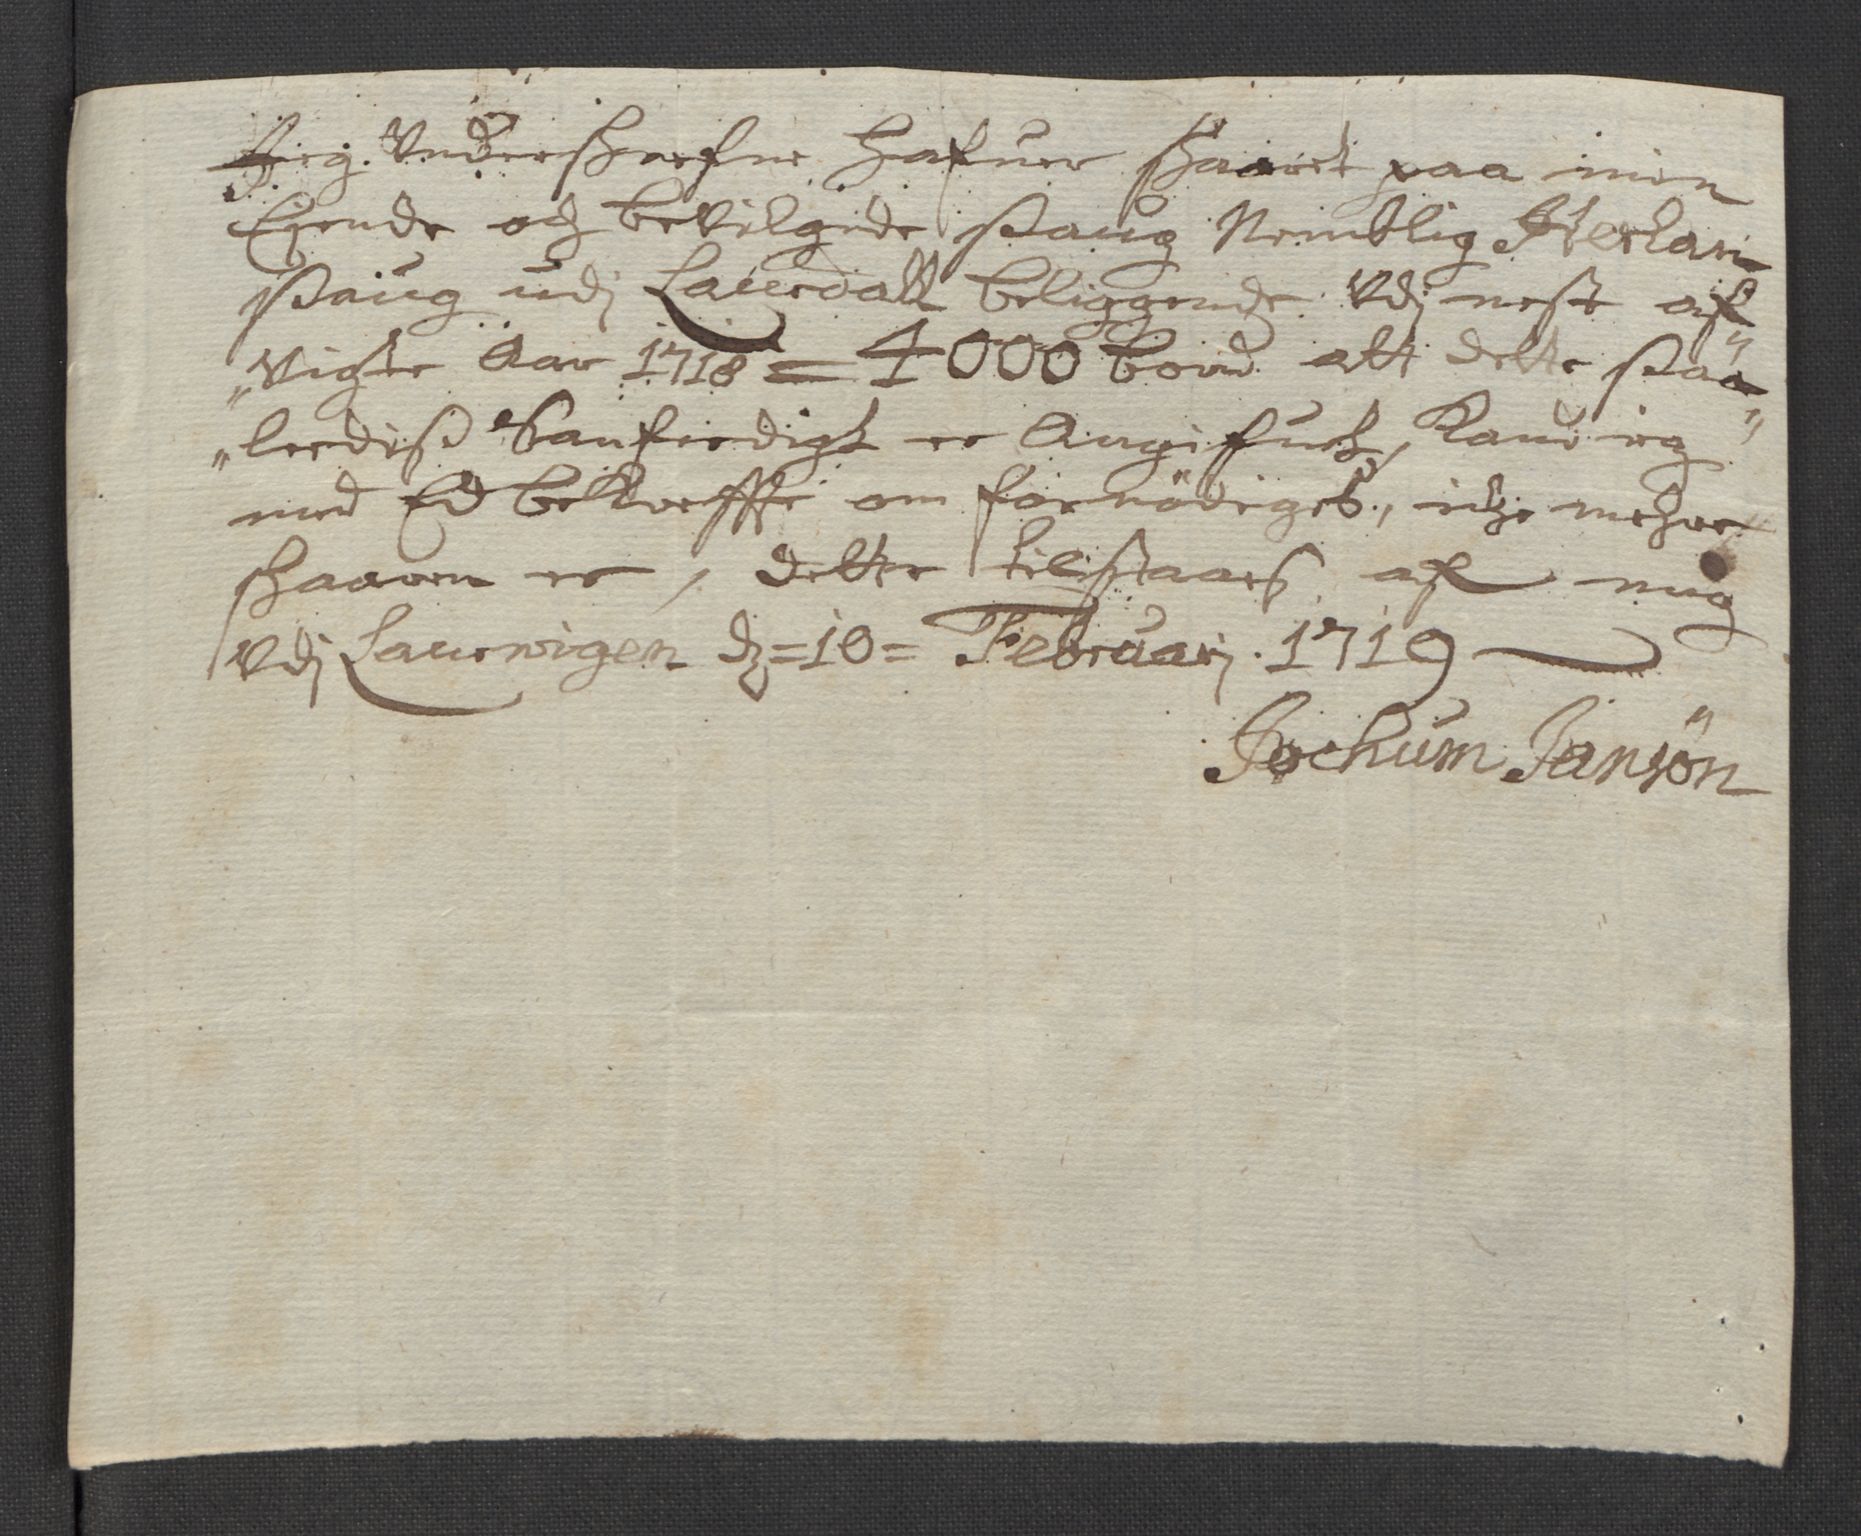 Jeg Underskrefne Hafuer skaaret paa min
Ejende och bevilgede Saug Nemblig Herland
Saug udj Lauerdall beliggende Udj nest af
Vigte Aar 1718 = 4000 bord att dette saa
leediss Sanferdigt er Angifuet, Kand ieg
med Ed bekreffte om fornödiges, icke mehre
skaaren er, dette tilstaaes af mig
Udj Laurwigen d = 10 = Februarij. 1719
Jochum Jansön